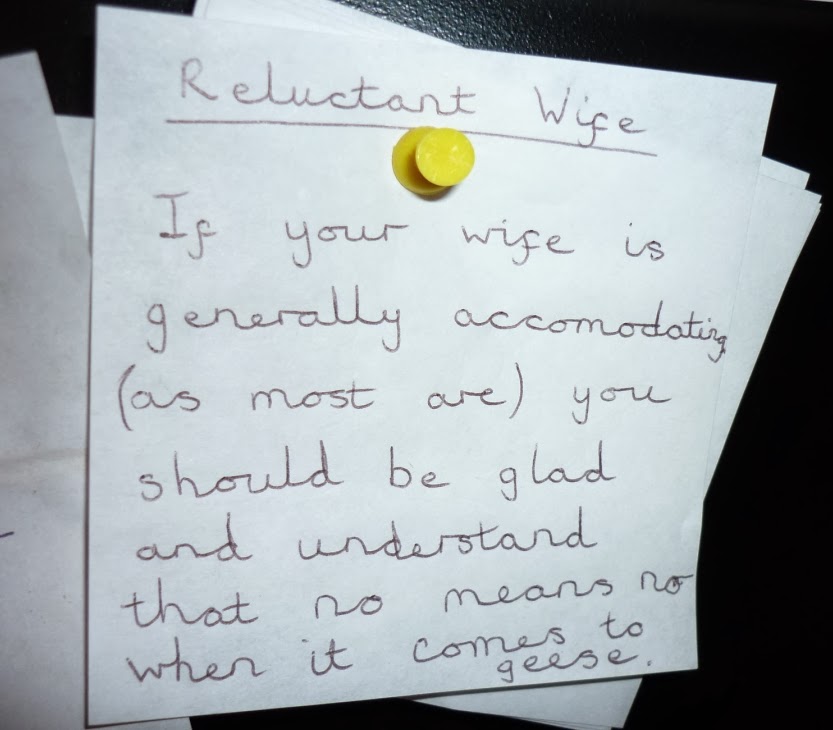 Reluctant Wife
If your wife is
generally accomodating
(as most are) you
should be glad
and understand
that no means no
when it comes to
geese.